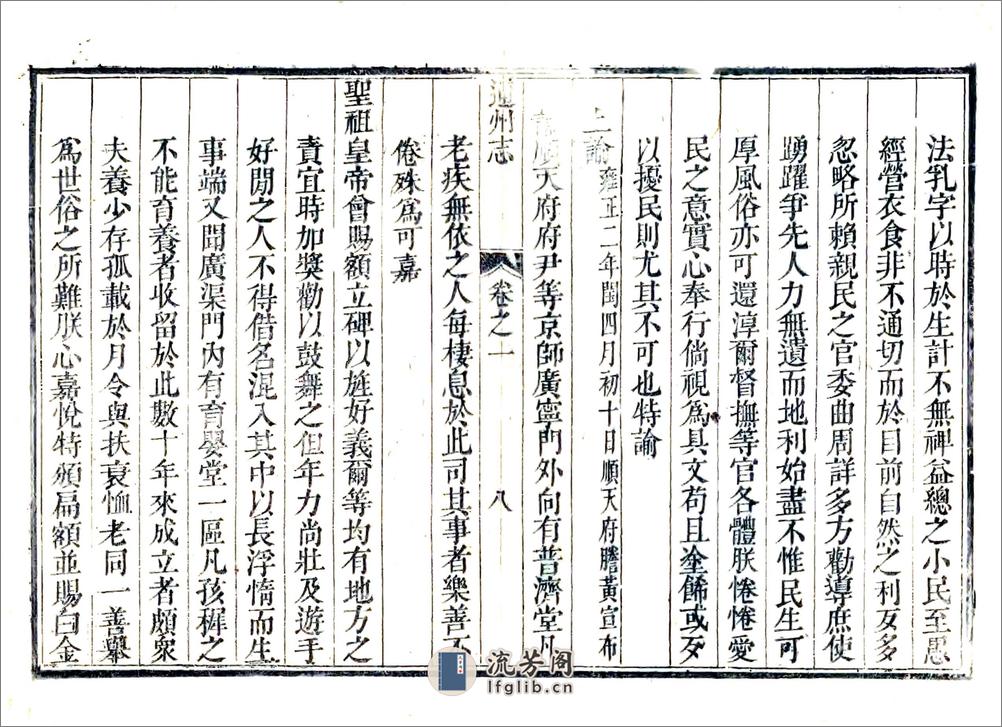 法乳字以時於生計不無裨益總之小民至愚
經營衣食非不通切而於目前自然之利反多
忽略所賴親民之官委曲周詳多方勸導庶使
踴躍爭先人力無遺而地利始盡不惟民生可
厚風俗亦可還淳爾督撫等官各體朕惓惓愛
民之意實心奉行倘視爲具文苟且塗餙或反
以擾民則尤其不可也特諭
上諭雍正二年閏四月初十日順天府謄黃宣布
順天府府尹等京師廣寧門外向有普濟堂凡
通州志 卷之一 八
老疾無依之人每棲息於此司其事者樂善不
倦殊爲可嘉
聖祖皇帝曾賜額立碑以旌好義爾等均有地方之
責宜時加獎勸以鼓舞之但年力尚壯及遊手
好閒之人不得借名混入其中以長浮惰而生
事端又聞廣渠門內有育嬰堂一區凡孩穉之
不能育養者收留於此數十年來成立者頗衆
夫養少存孤載於月令與扶衰恤老同一善舉
爲世俗之所難朕心嘉悅特頒扁額並賜白金
流芳阁
lfglib.cn